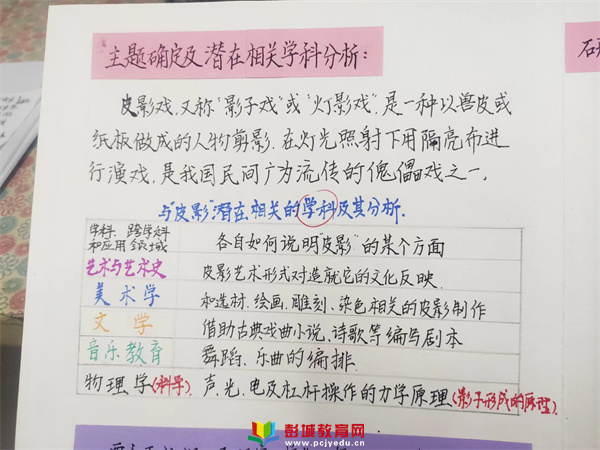 主题确定及潜在相关学科分析：
石
皮影戏，又称“影子戏”或“灯影戏”，是一种以兽皮或
纸板做成的人物剪影，在灯光照射下用隔亮布进
行演戏，是我国民间广为流传的傀儡戏之一。
与“皮影”潜在相关的学科及其分析．
学科、跨学科和应用领域 各自如何说明“皮影”的某个方面
艺术与艺术史 皮影艺术形式对造就它的文化反映．
美术学 和选材、绘画、雕刻、染色相关的皮影制作
文学 借助古典戏曲小说、诗歌等编写剧本
音乐教育 舞蹈、乐曲的编排．
物理学（科学） 声、光、电及杠杆操作的力学原理（影子形成的原理）
彭城教育网
www.pcjyedu.cn